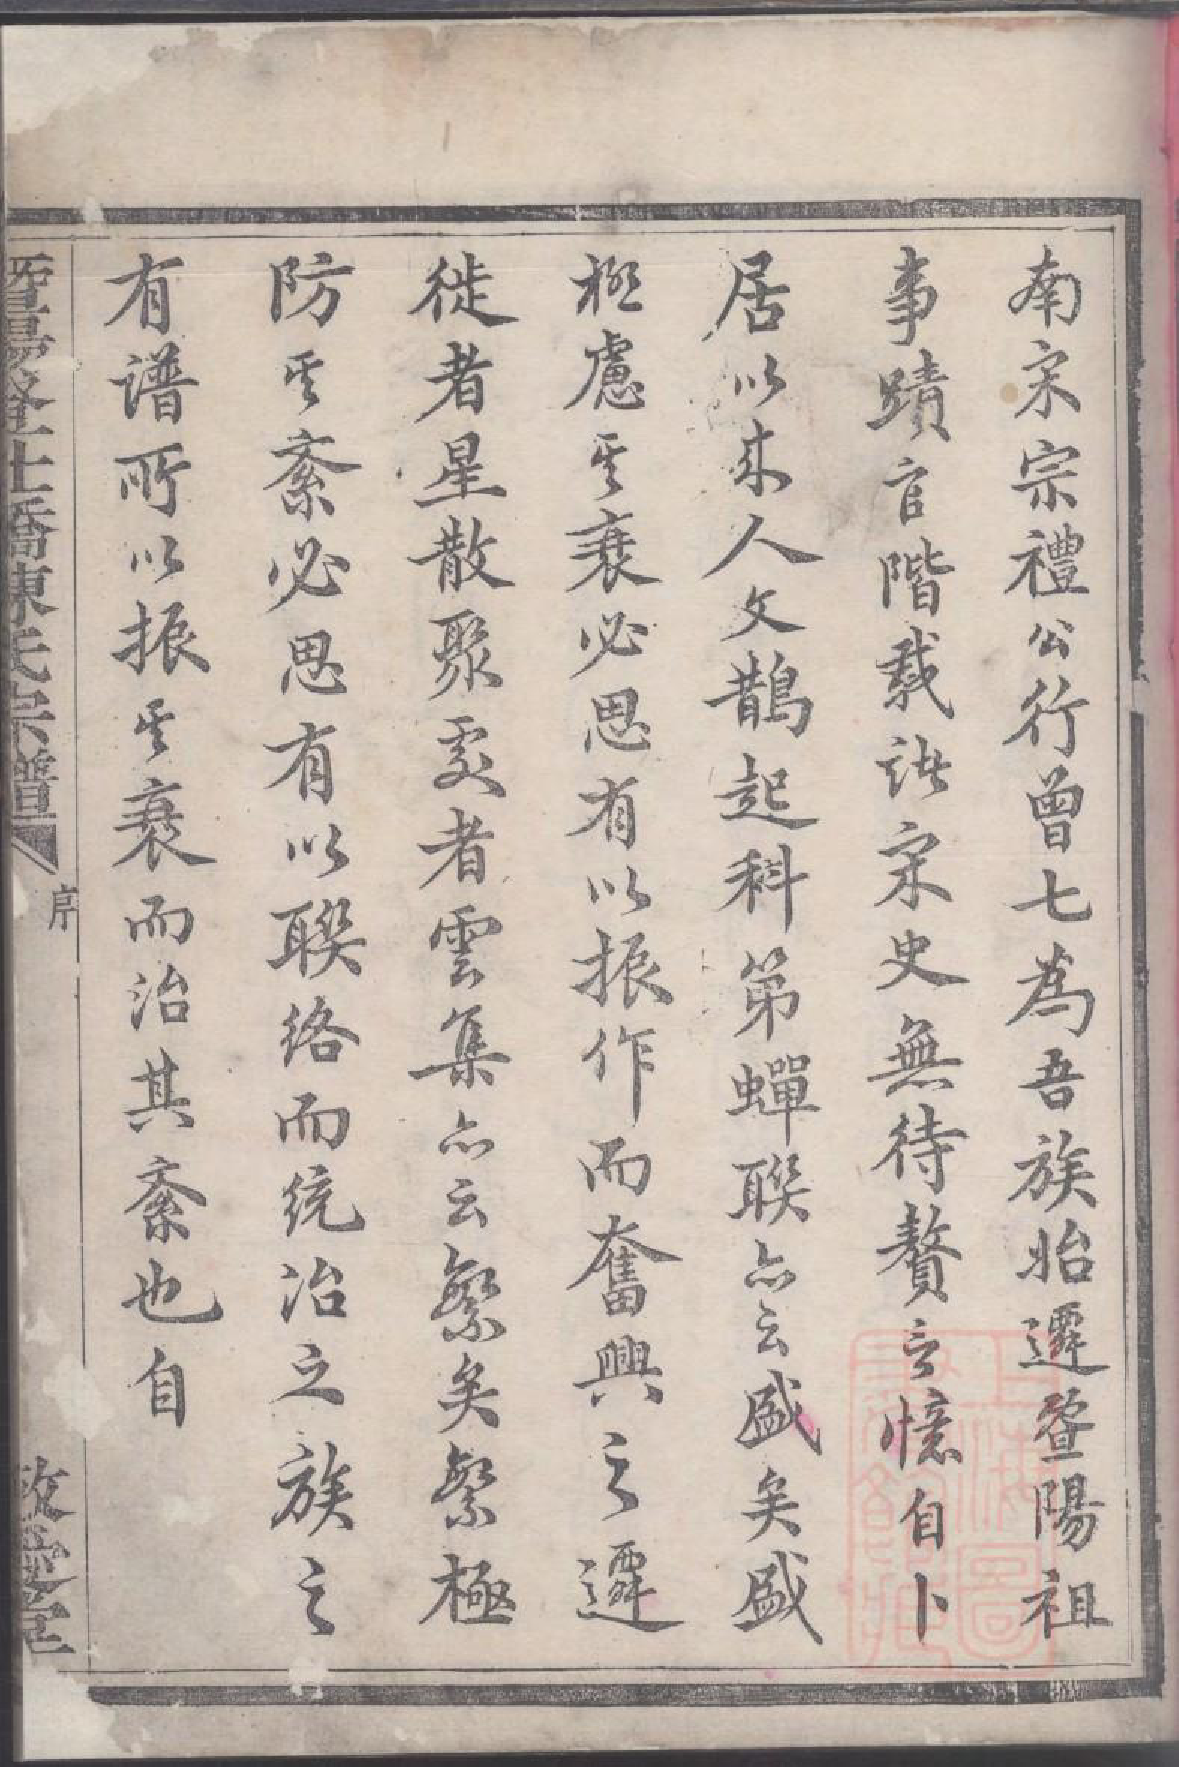 南宋宗禮公行曾七為吾族始遷暨陽祖
事蹟官階載諸宋史無待贅言憶自卜
居以來人文鵲起科第蟬聯亦云盛矣盛
極慮其衰必思有以振作而奮興之遷
徙者星散聚處者雲集亦云繁矣繁極
防其紊必思有以聯絡而統治之族之
有譜所以振其衰而治其紊也自
士橋陳氏宗譜
序
敦堂
上海圖書館藏